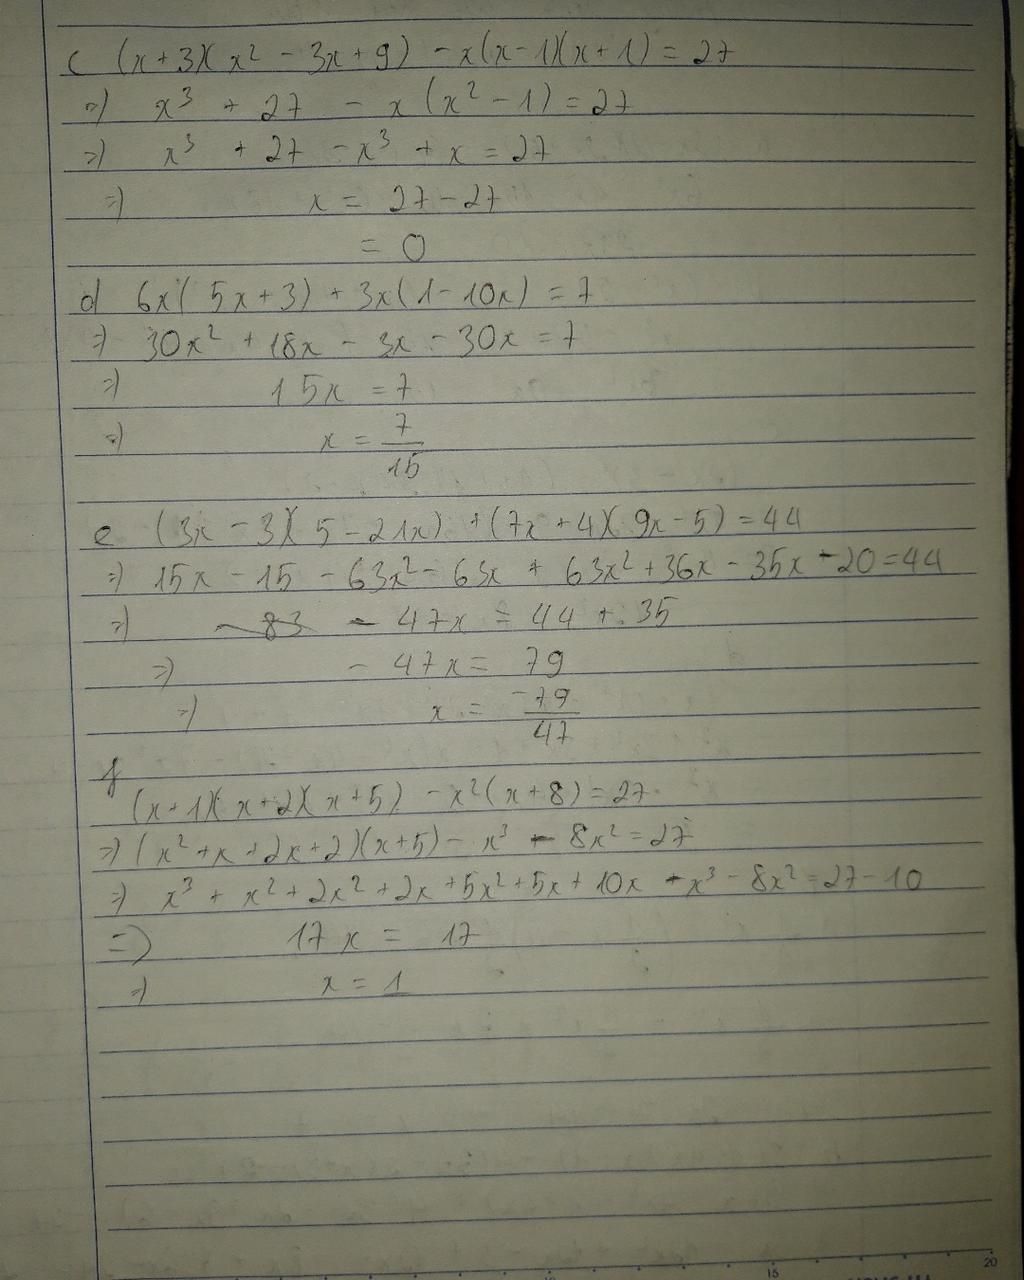 c (x+3)(x² - 3x + 9) - x(x-1)(x+1) = 27
=) x³ + 27 - x (x² - 1) = 27
=) x³ + 27 - x³ + x = 27
=) x = 27 - 27
= 0
d 6x( 5x+3) + 3x(1 - 10x) = 7
=) 30x² + 18x - 3x - 30x = 7
=) 15x = 7
=) x = 7/15
e (3x - 3)( 5 - 21x) + (7x + 4)( 9x - 5) = 44
=) 15x - 15 - 63x² - 63x + 63x² + 36x - 35x - 20 = 44
=) - 47x = 44 + 35
=) - 47x = 79
=) x = -79/47
f
(x+1)(x+2)(x+5) - x²(x+8) = 27
=) (x² + x + 2x + 2)(x+5) - x³ - 8x² = 27
=) x³ + x² + 2x² + 2x + 5x² + 5x + 10x - x³ - 8x² = 27 - 10
=) 17x = 17
=) x = 1
15
20